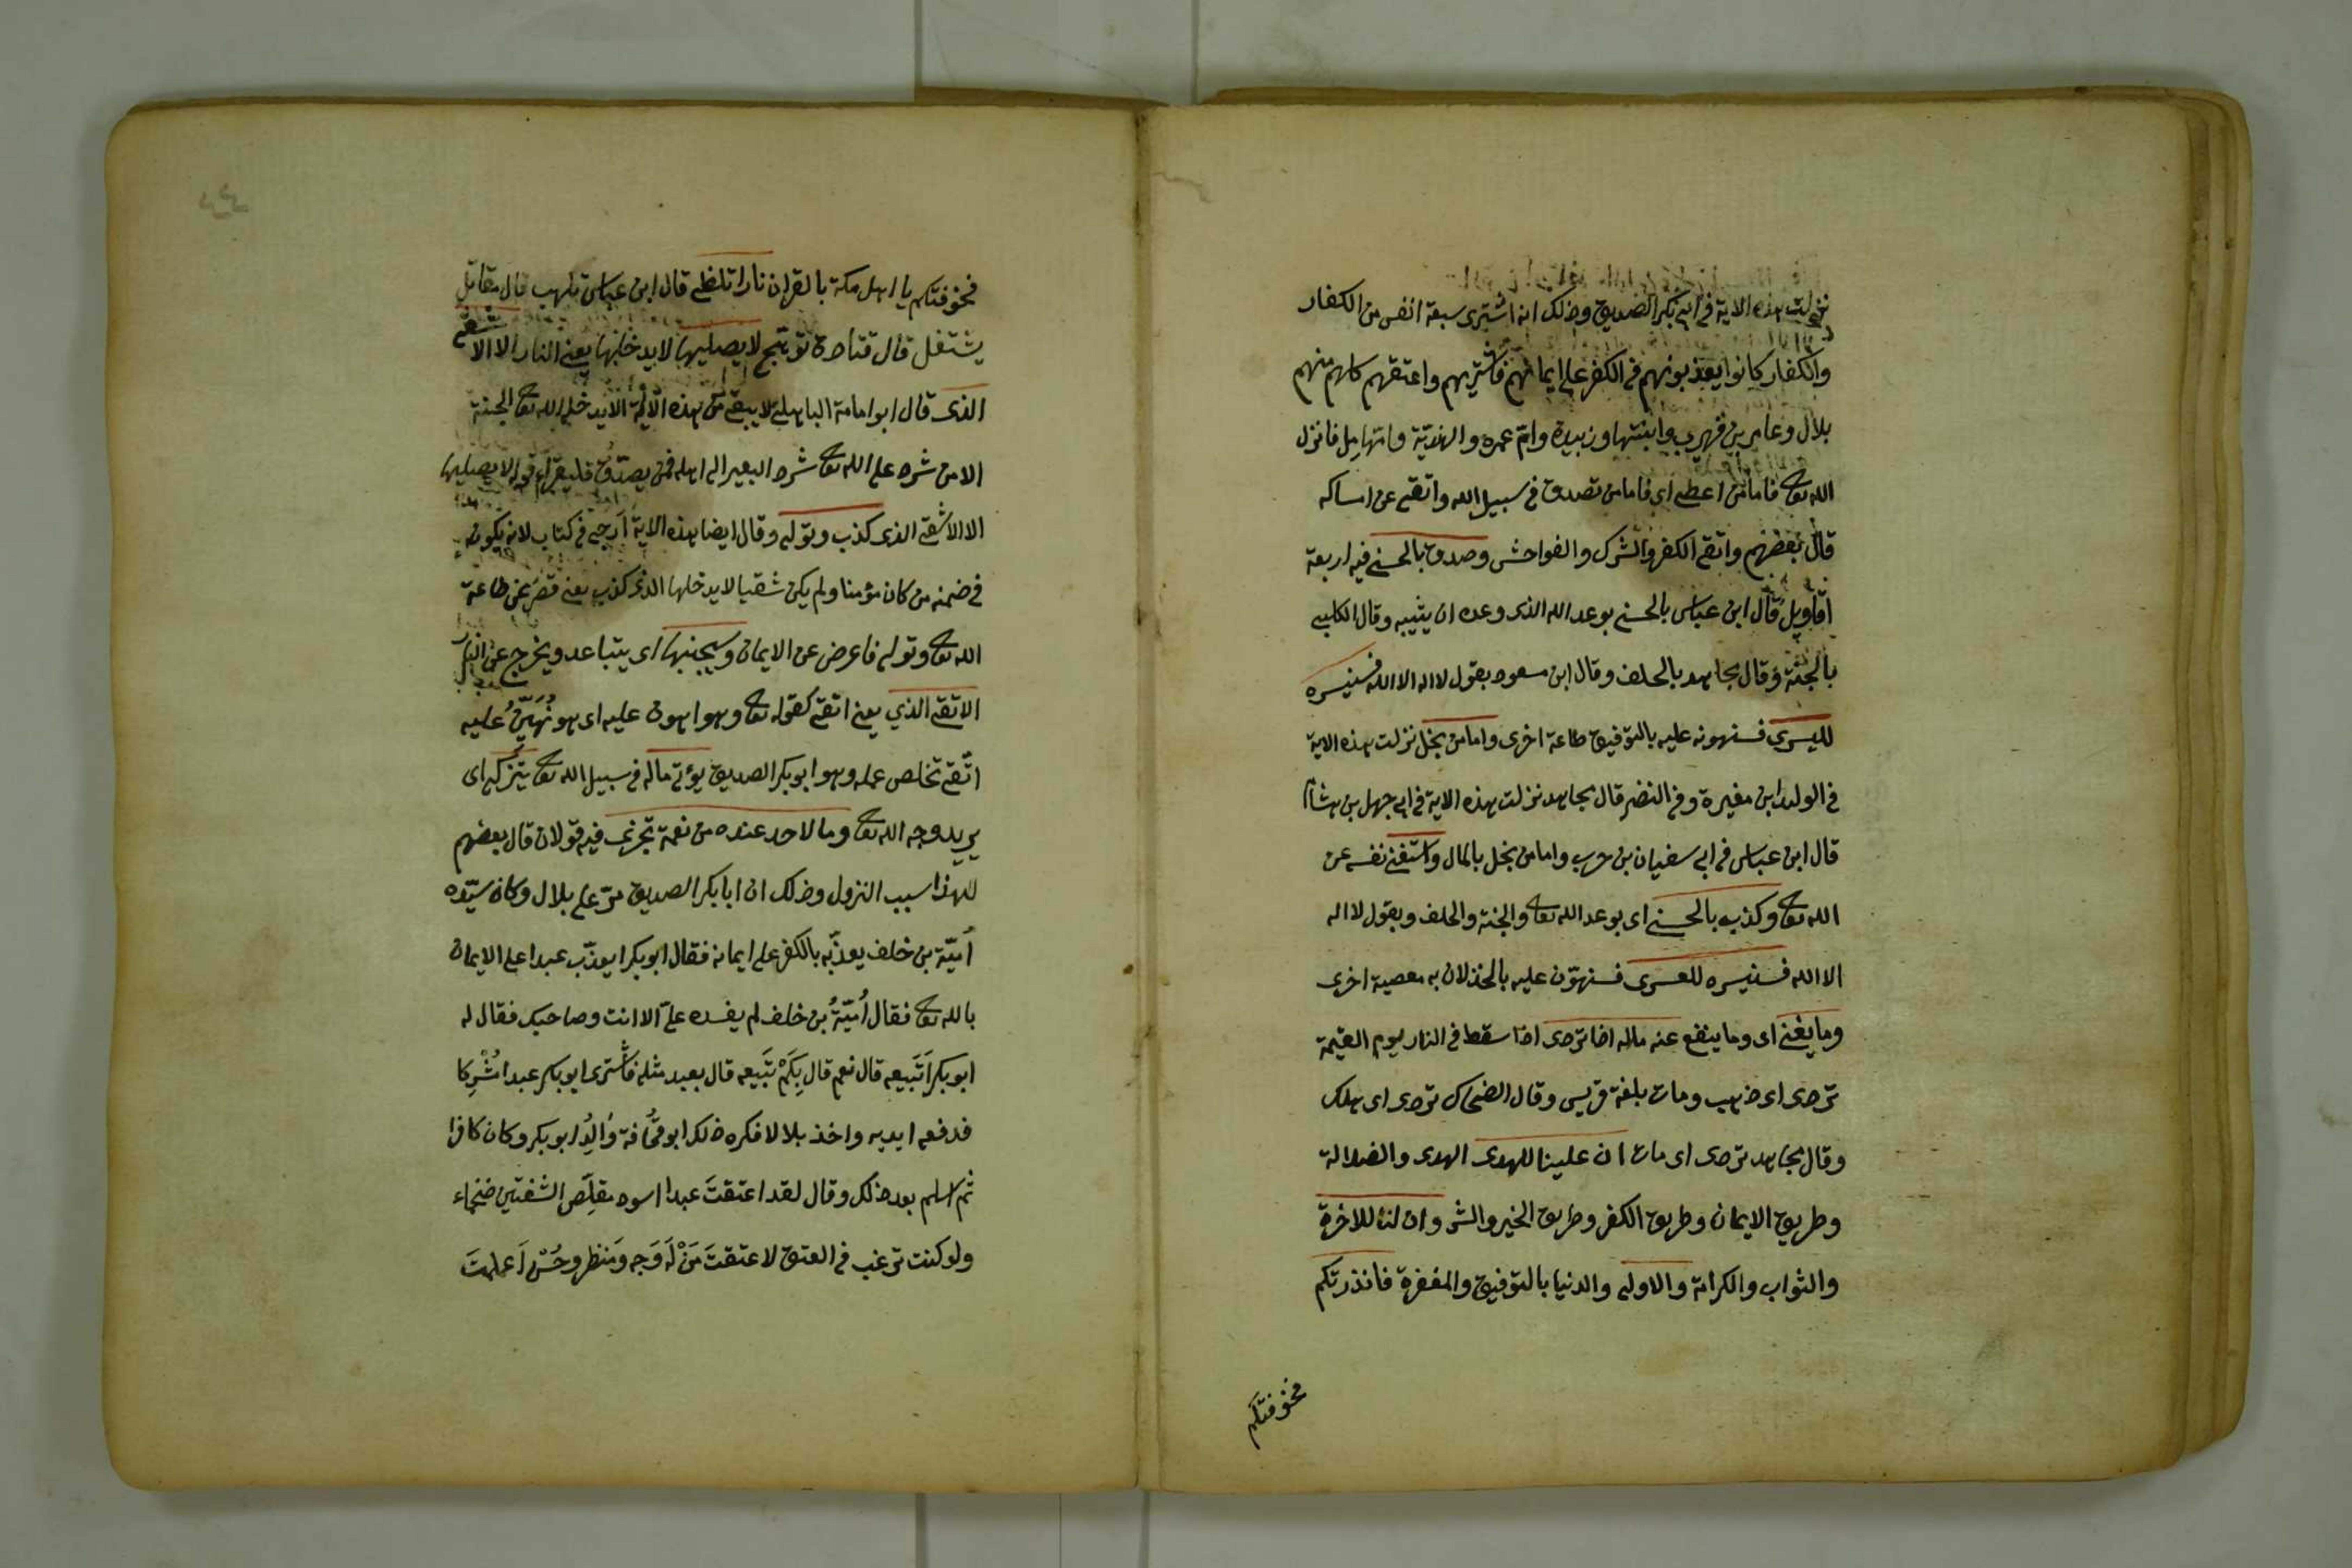 نزلت هذه الاية في ابي بكر الصديق وذلك انه اشترى سبعة انفس من الكفار
والكفار كانوا يعذبونهم في الكفر على ايمانهم فاشتريهم واعتقهم كلهم منهم
بلال وعامر بن فهري وابنتها وزبيدة وام عمره والهنديّة فانزل
الله تعا فاما من اعطى اي فاما من تصدق في سبيل الله واتقى عن امساكه
قال بعضهم واتقى الكفر والشرك والفواحش وصدق بالحسنى فيه اربعة
اقاويل قال ابن عباس بالحسنى بوعد الله الذى وعده ان يثيبه وقال الكلبي
بالجنّة وقال مجاهد بالخلف وقال ابن مسعود بقول لا اله الا الله فسنيسره
لليسرى فسنهونه عليه بالتوفيق طاعة اخرى واما من بخل نزلت هذه الاية
في الوليد ابن مغيرة وفي النضر قال مجاهد نزلت هذه الاية في ابي جهل بن هشام
قال ابن عباس في ابي سفيان بن حرب واما من بخل بالمال واستغنى نفسه عن
الله تعا وكذب بالحسنى اى بوعد الله تعا والجنة والخلف وبقول لا اله
الا الله فسنيسره للعسرى فسنهوّن عليه بالخذلان به معصية اخرى
وما يغنى اى وما ينفع عنه ماله اذا تردى اذا سقط في النار يوم القيمة
تردى اى ذهب ومات بلغة قريس وقال الضحاك تردى اى هلك
وقال مجاهد تردى اى مات ان علينا للهدى الهدى والضلالة
وطريق الايمان وطريق الكفر وطريق الخير والشر وان لنا للاخرة
والثواب والكرامة والاولى والدنيا بالتوفيق والمغفرة فانذرتكم
فخوفتكم
فخوفتكم يا اهل مكة بالقران نارا تلظى قال ابن عباس تلهب قال مقاتل
يشتغل قال قتادة توتهج لا يصليها لا يدخلها يعنى النار الا الاشقى
الذى قال ابو امامة الباهلى لا يبقى من هذه الامّة الا يدخله الله تعا الجنة
الا من شرد على الله تعا شرد البعير الى اهله فمن يصدّق فليقراء قوله لا يصليها
الا الاشقى الذى كذب وتولى وقال ايضا هذه الاية ارجى في كتاب لانه يكون
في ضمنه من كان مؤمنا ولم يكن شقيا لا يدخلها الذى كذب يعنى قصر عن طاعة
الله تعا وتولى فاعرض عن الايمان وسيجنبها اى يتباعد ويخرج عن النار
الاتقى الذي يعنى اتقى كقوله تعا وهو اهون عليه اى هو نُهَيّنُ عليه
اتّقى تخلص عمله وهو ابو بكر الصديق يؤتى ماله في سبيل الله تعا يتزكى اى
يريد وجه الله تعا وما لاحد عنده من نعمة تجزى فيه قولان قال بعضهم
لهذا سبب النزول وذلك ان ابا بكر الصديق مرّ على بلال وكان سيّده
اُميّة بن خلف يعذّبه بالكفر على ايمانه فقال ابو بكر ايعذّب عبدا على الايمان
بالله تعا فقال اُميّةُ بن خلف لم يفسده علىّ الا انت وصاحبك فقال له
ابو بكر اَتَبيعه قال نعم قال بِكَمْ تَبيعه قال بعبد مثله فاشترى ابو بكر عبدا مُشْرِكا
فدفعه ايديه واخذ بلالا فكره ذلك ابو قُحافة وَالِدُ ابو بكر وكان كافرا
ثم اسلم بعد ذلك وقال لقد اعتقتَ عبدا اسود مقلِّص الشفتين ضخماء
ولو كنت ترغب في العتق لاعتقتَ مَنْ لَه وَجه ومَنظر وحُسْن